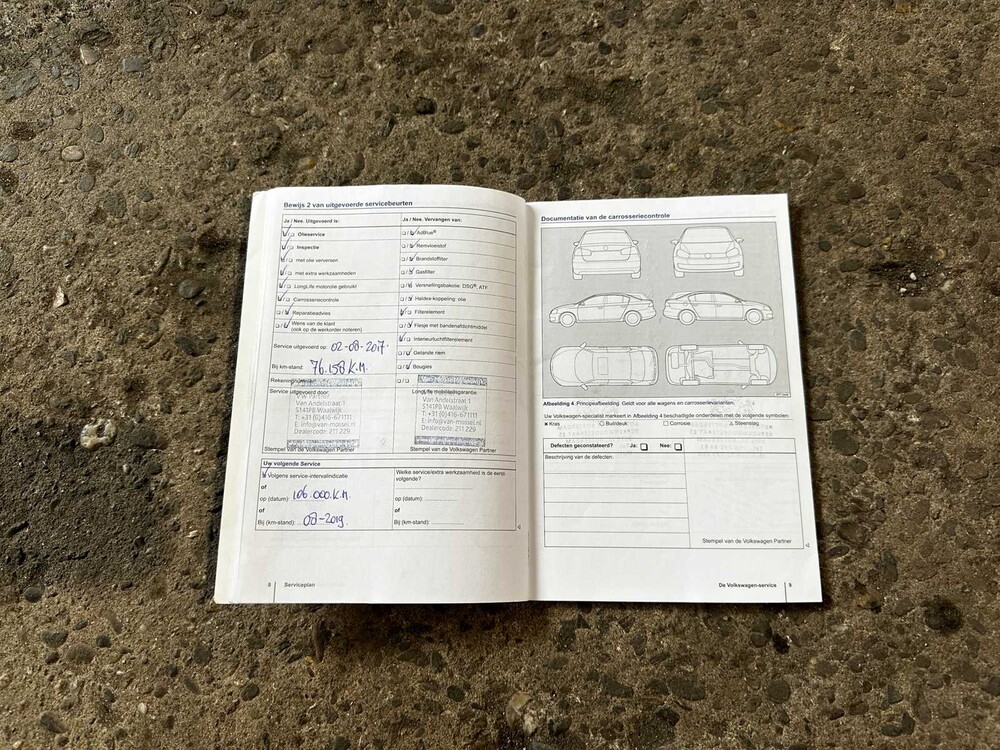 Bewijs 2 van uitgevoerde servicebeurten
Ja / Nee. Uitgevoerd is:
Olieservice
Inspectie
met olie verversen
met extra werkzaamheden
LongLife motorolie gebruikt
Carrosseriecontrole
Reparatieadvies
Wens van de klant
(ook op de werkorder noteren)
Service uitgevoerd op: 02-08-2017.
Bij km-stand: 76.158 K.M.
Rekeningnummer
Service uitgevoerd door:
Van Andelstraat 1
5141PB Waalwijk
T: +31 (0)416-671111
E: info@van-mossel.nl
Dealercode: 211 229
Stempel van de Volkswagen Partner
Ja / Nee. Vervangen van:
AdBlue®
Remvloeistof
Brandstoffilter
Gasfilter
Versnellingsbakolie: DSG®, ATF
Haldex-koppeling: olie
Filterelement
Flesje met bandenafdichtmiddel
Interieurluchtfilterelement
Getande riem
Bougies
LongLife mobiliteitsgarantie
Van Andelstraat 1
5141PB Waalwijk
T: +31 (0)416-671111
E: info@van-mossel.nl
Dealercode: 211 229
Stempel van de Volkswagen Partner
Uw volgende Service
Volgens service-intervalindicatie
of
op (datum): 106.000 K.M.
of
Bij (km-stand): 08-2019.
Welke service/extra werkzaamheid is de eerst
volgende?
op (datum):
of
Bij (km-stand):
8 Serviceplan
Documentatie van de carrosseriecontrole
Afbeelding 4 Principeafbeelding. Geldt voor alle wagens en carrosserievarianten.
Uw Volkswagen-specialist markeert in Afbeelding 4 beschadigde onderdelen met de volgende symbolen:
× Kras ○ Buil/deuk □ Corrosie △ Steenslag
Defecten geconstateerd? Ja: □ Nee: □
Beschrijving van de defecten:
Stempel van de Volkswagen Partner
De Volkswagen-service 9